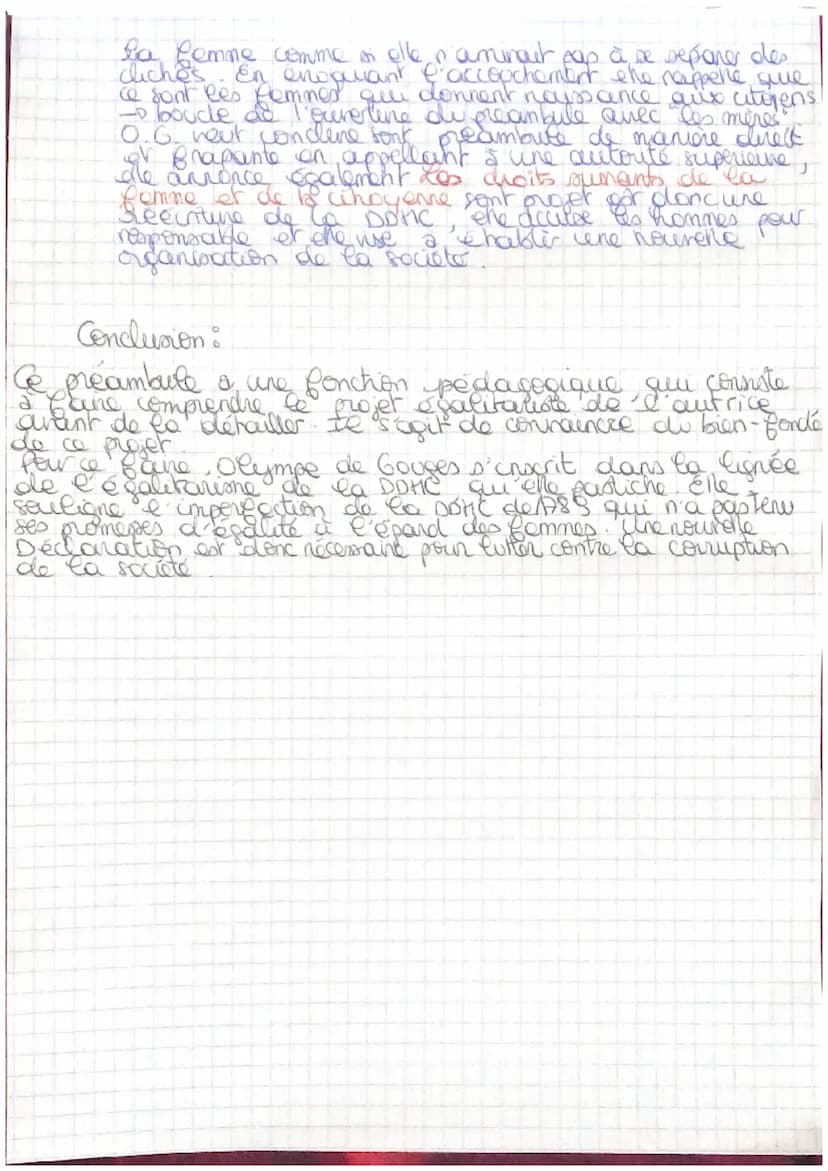 la femme comme si elle n'arrivait pas à se séparer des
clichés. En évoquant l'accouchement elle rappelle que
ce sont les femmes qui donnent naissance aux citoyens
→ boucle de l'ouverture du préambule avec "les mères"
O.G veut conclure son préambule de manière direct
et frapante en appellant à une autorité supérieure,
elle annonce également les droits suivants de la
femme et de la citoyenne son projet est donc une
réécriture de la DDHC, elle accuse les hommes pour
responsable et elle vise à établir une nouvelle
organisation de la société.
Conclusion :
Ce préambule a une fonction pédagogique qui consiste
à faire comprendre le projet égalitariste de l'autrice
avant de la détailler. Il s'agit de convaincre du bien-fondé
de ce projet.
Pour ce faire, Olympe de Gouges s'inscrit dans la lignée
de l'égalitarisme de la DDHC qu'elle pastiche. Elle
souligne l'imperfection de la DDHC de 1789 qui n'a pas tenu
ses promesses d'égalité à l'égard des femmes. Une nouvelle
Déclaration est donc nécessaire pour lutter contre la corruption
de la société.